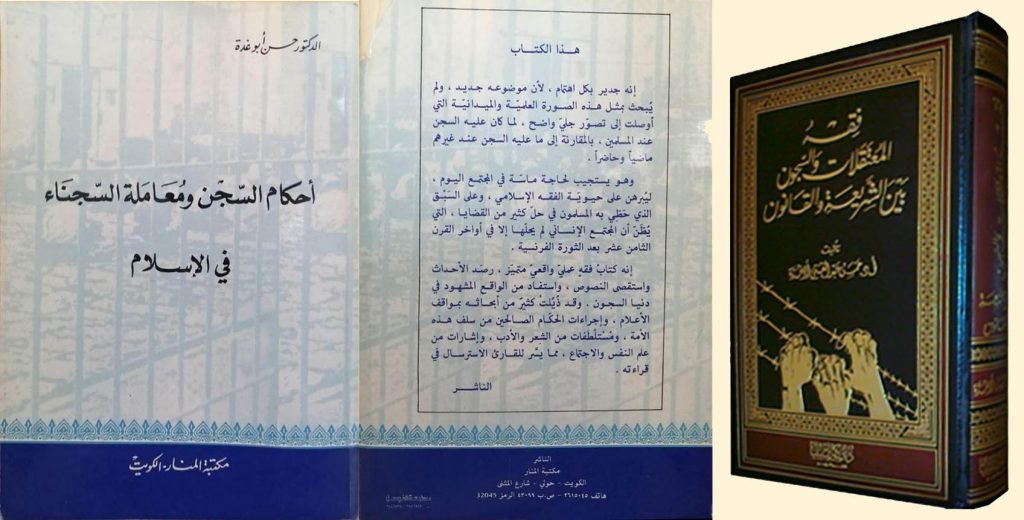 الدكتور حسن أبو غدة
أحكام السّجْن ومُعَاملة السّجنَاء
في الإسلام
مكتبة المنار - الكويت
هذا الكتاب
إنه جدير بكل اهتمام ، لأن موضوعه جديد ، ولم
يُبحث بمثل هذه الصورة العلمية والميدانية التي
أوصلت إلى تصوّر جليّ واضح ، لما كان عليه السجن
عند المسلمين ، بالمقارنة إلى ما عليه السجن عند غيرهم
ماضياً وحاضراً .
وهو يستجيب لحاجة ماسة في المجتمع اليوم ،
ليُبرهن على حيويّة الفقه الإسلامي ، وعلى السَبْق
الذي حَظِي به المسلمون في حلّ كثير من القضايا ، التي
يُظَنّ أن المجتمع الإنساني لم يحلّها إلا في أواخر القرن
الثامن عشر بعد الثورة الفرنسية .
إنه كتابُ فقهٍ عمليّ واقعيّ متميّز ، رصدَ الأحداث
واستقصى النصوص ، واستفاد من الواقع المشهود في
دنيا السجون . وقد ذُيّلت كثيرٌ من أبحاثه بمواقف
الأعلام ، وإجراءات الحكّام الصالحين من سلف هذه
الأمة ، ومُسْتلطَفات من الشعر والأدب ، وإشارات من
علم النفس والاجتماع ، مما يسَّر للقارئ الاسترسال في
قراءته .
الناشر
الناشر
مكتبة المنار
الكويت - حولي - شارع المثنى
هاتف ٢٦١٥٠٤٥ - ص.ب ٤٣٠٩٩ الرمز 32045
فقه
المعتقلات والسجون
بين الشريعة والقانون
تأليف